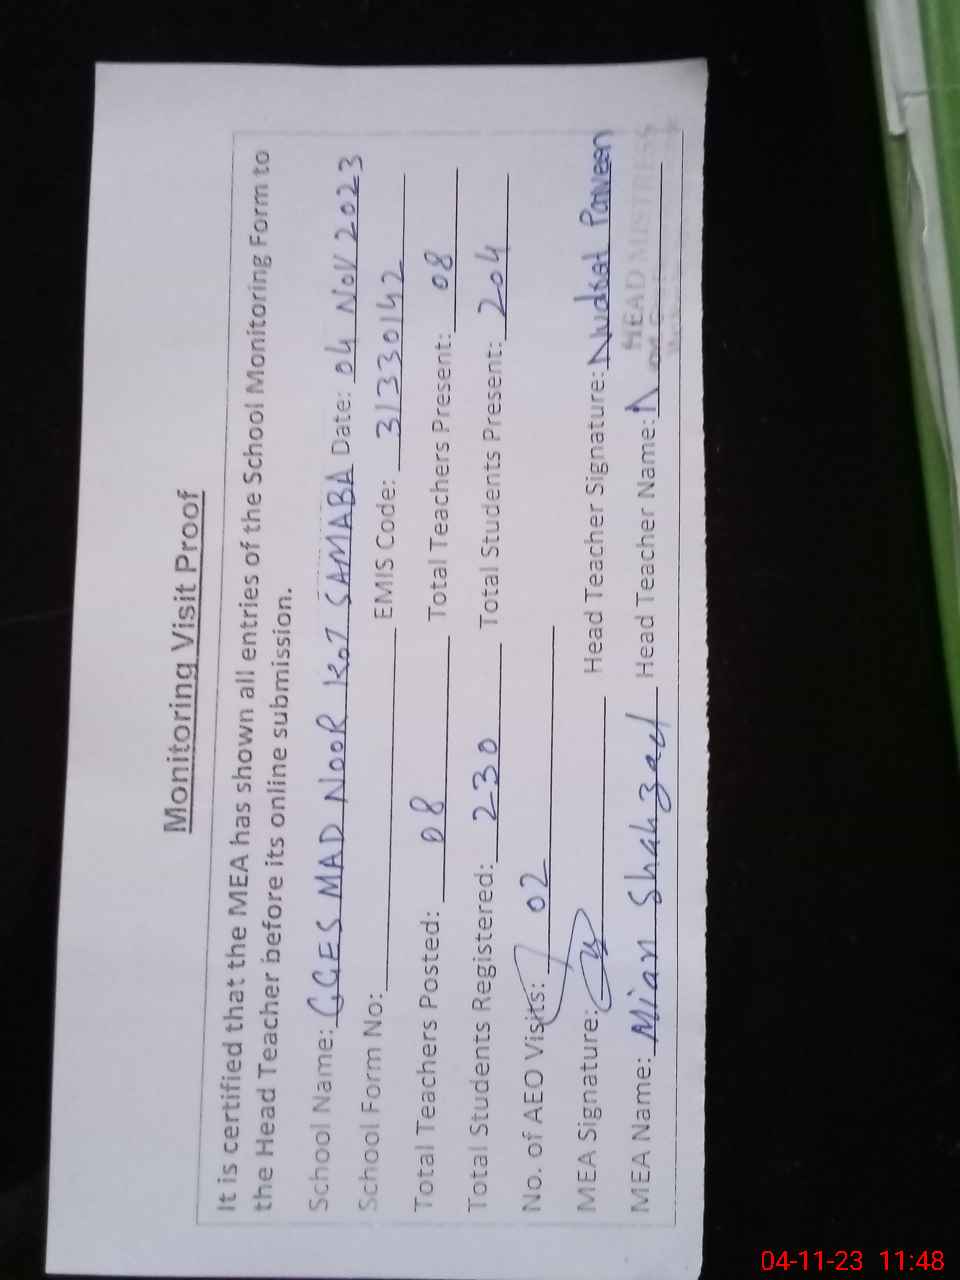 Monitoring Visit Proof
It is certified that the MEA has shown all entries of the School Monitoring Form to
the Head Teacher before its online submission.
School Name: GGES MAD NOOR KOT SAMABA Date: 04 NOV 2023
School Form No: EMIS Code: 31330142
Total Teachers Posted: 08 Total Teachers Present: 08
Total Students Registered: 230 Total Students Present: 204
No. of AEO Visits: 02
MEA Signature: Head Teacher Signature: Nudrat Parveen
MEA Name: Mian Shahzad Head Teacher Name:
HEAD MISTRESS
04-11-23 11:48